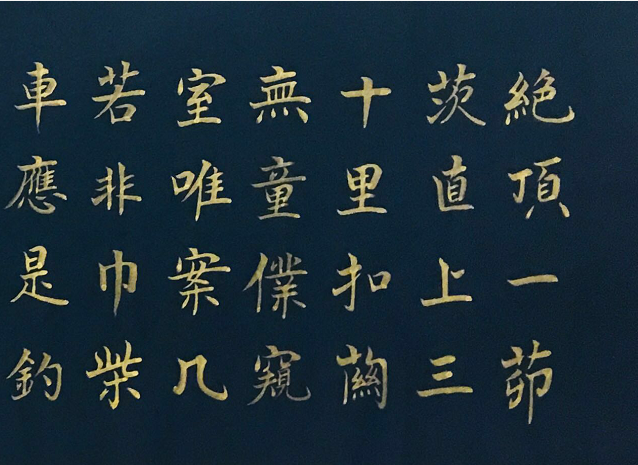 絶頂一茆
茨直上三
十里扣關
無童僕窺
室唯案几
若非巾柴
車應是釣